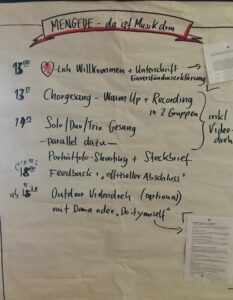 MENGEDE - da ist Musik drin
13⁰⁰ -lich Willkommen + Unterschrift
Einverständniserklärung
Chorgesang - Warm Up + Recording
in 2 Gruppen
inkl
Videodreh
Solo/Duo/Trio Gesang
- parallel dazu -
Porträtfoto-Shooting + Steckbrief
18⁰⁰ Feedback + "offizieller Abschluss"
ab Outdoor Videodreh (optional)
mit Doma oder "Do it yourself"